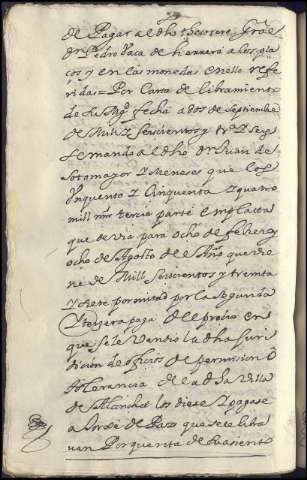 de Pagar al dho thesorero Gral
Dn Pedro Vaca de herrera a los pla
ços y en las monedas en ello refe
ridas = Por Carta de libramiento
de Su Mgd fecha a dos de septiembre
de Mill y seiscientos y
se mando al dho Dn Juan de
Sotomayor y Meneses que los
Un quento y Cinquenta y quatro
mill mrs tercia parte en plata
que devia para ocho de febrero y
ocho de Agosto del Año que vie
ne de Mill seiscientos y treinta
y siete por mitad por la segunda
y terzera paga del preçio en
que se le vendio la dha juri
diçion de
tolerancia de la dha Villa
de los diese y pagase
a Jorge de Paz que se le libra
van Por quenta de su asiento